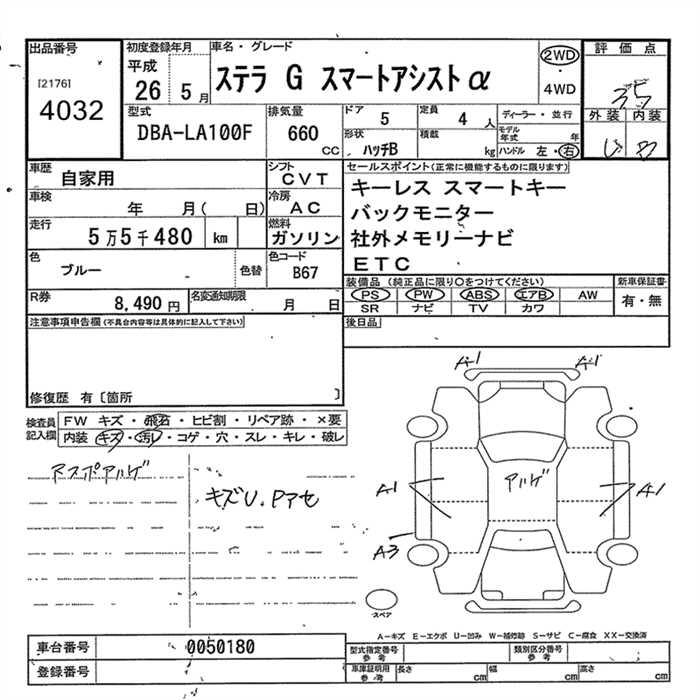 出品番号 初度登録年月 車名・グレード 評価点
[2176] 平成 ステラ G スマートアシストα 2WD
4032 26 5月 4WD
35
型式 排気量 ドア 定員 ディーラー・並行 外装 内装
DBA-LA100F 660 CC 5 4人 モデル年式 年
形状 積載
ハッチB kg ハンドル 左・右
車歴 シフト セールスポイント(正常に機能するものに限ります)
自家用 CVT キーレス スマートキー
車検 冷房
年 月( 日) AC バックモニター
走行 燃料
5万5千480 km ガソリン 社外メモリーナビ
色 色コード
ブルー 色替 B67 ETC
装備品(純正品に限り〇をつけてください) 新車保証書
R券 8,490円 名変通知期限 月 日 PS PW ABS エアB AW 有・無
SR ナビ TV カワ
注意事項申告欄(不具合内容等は具体的に記入して下さい) 後日品
修復歴 有〔箇所 〕
検査員記入欄 FW キズ・飛石・ヒビ割・リペア跡・×要
内装 キズ・汚レ・コゲ・穴・スレ・キレ・破レ
A-1 A-1
アスポアルゲ アルゲ
キズU.Pアセ A1 A1
A3
スペア
A-キズ E-エクボ U-凹み W-補修跡 S-サビ C-腐食 XX-交換済
車台番号 0050180 型式指定番号 参考 類別区分番号 参考
登録番号 車庫証明用 参考 長さ cm 幅 cm 高さ cm